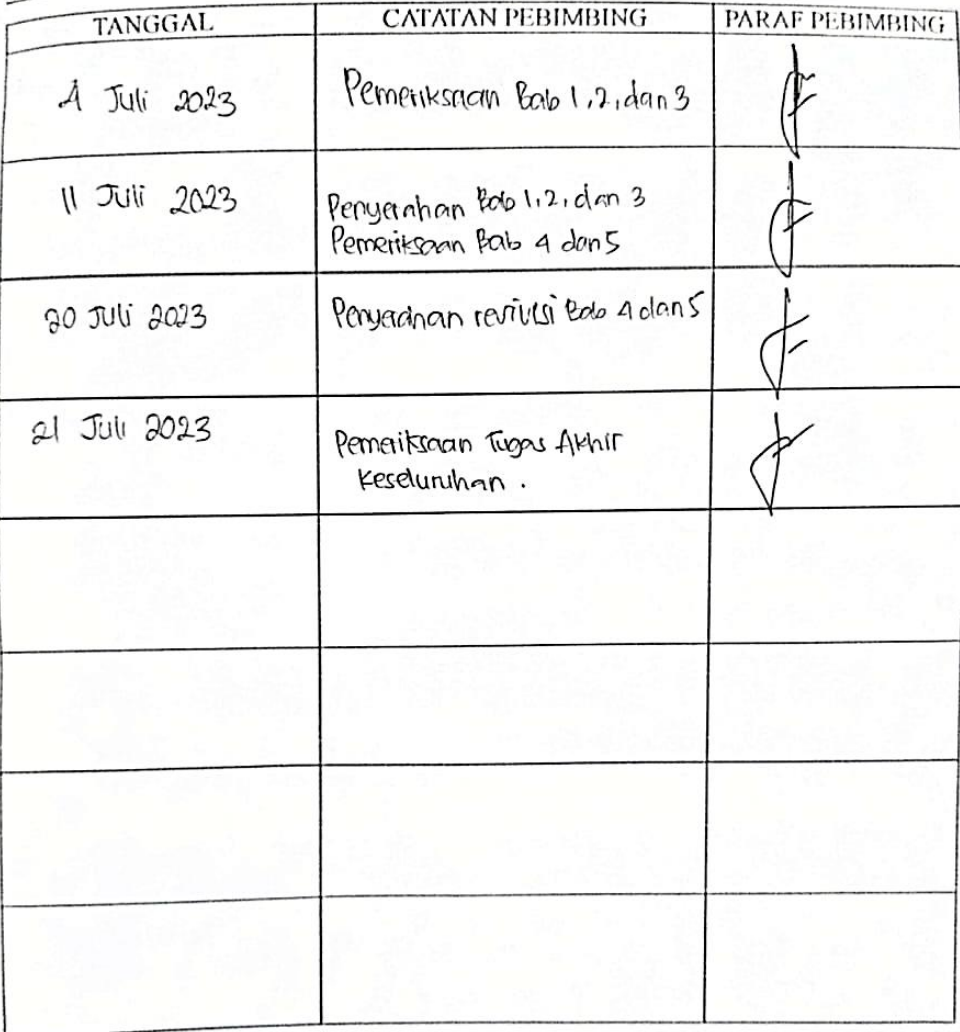 TANGGAL CATATAN PEBIMBING PARAF PEBIMBING
4 Juli 2023 Pemeriksaan Bab 1, 2, dan 3
11 Juli 2023 Penyerahan Bab 1, 2, dan 3
Pemeriksaan Bab 4 dan 5
20 Juli 2023 Penyerahan revisi Bab 4 dan 5
21 Juli 2023 Pemeriksaan Tugas Akhir
Keseluruhan .